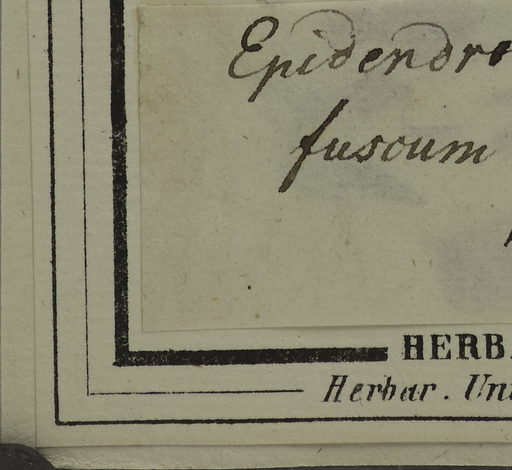 Epidendr
fuscum
HERB
Herbar. Un